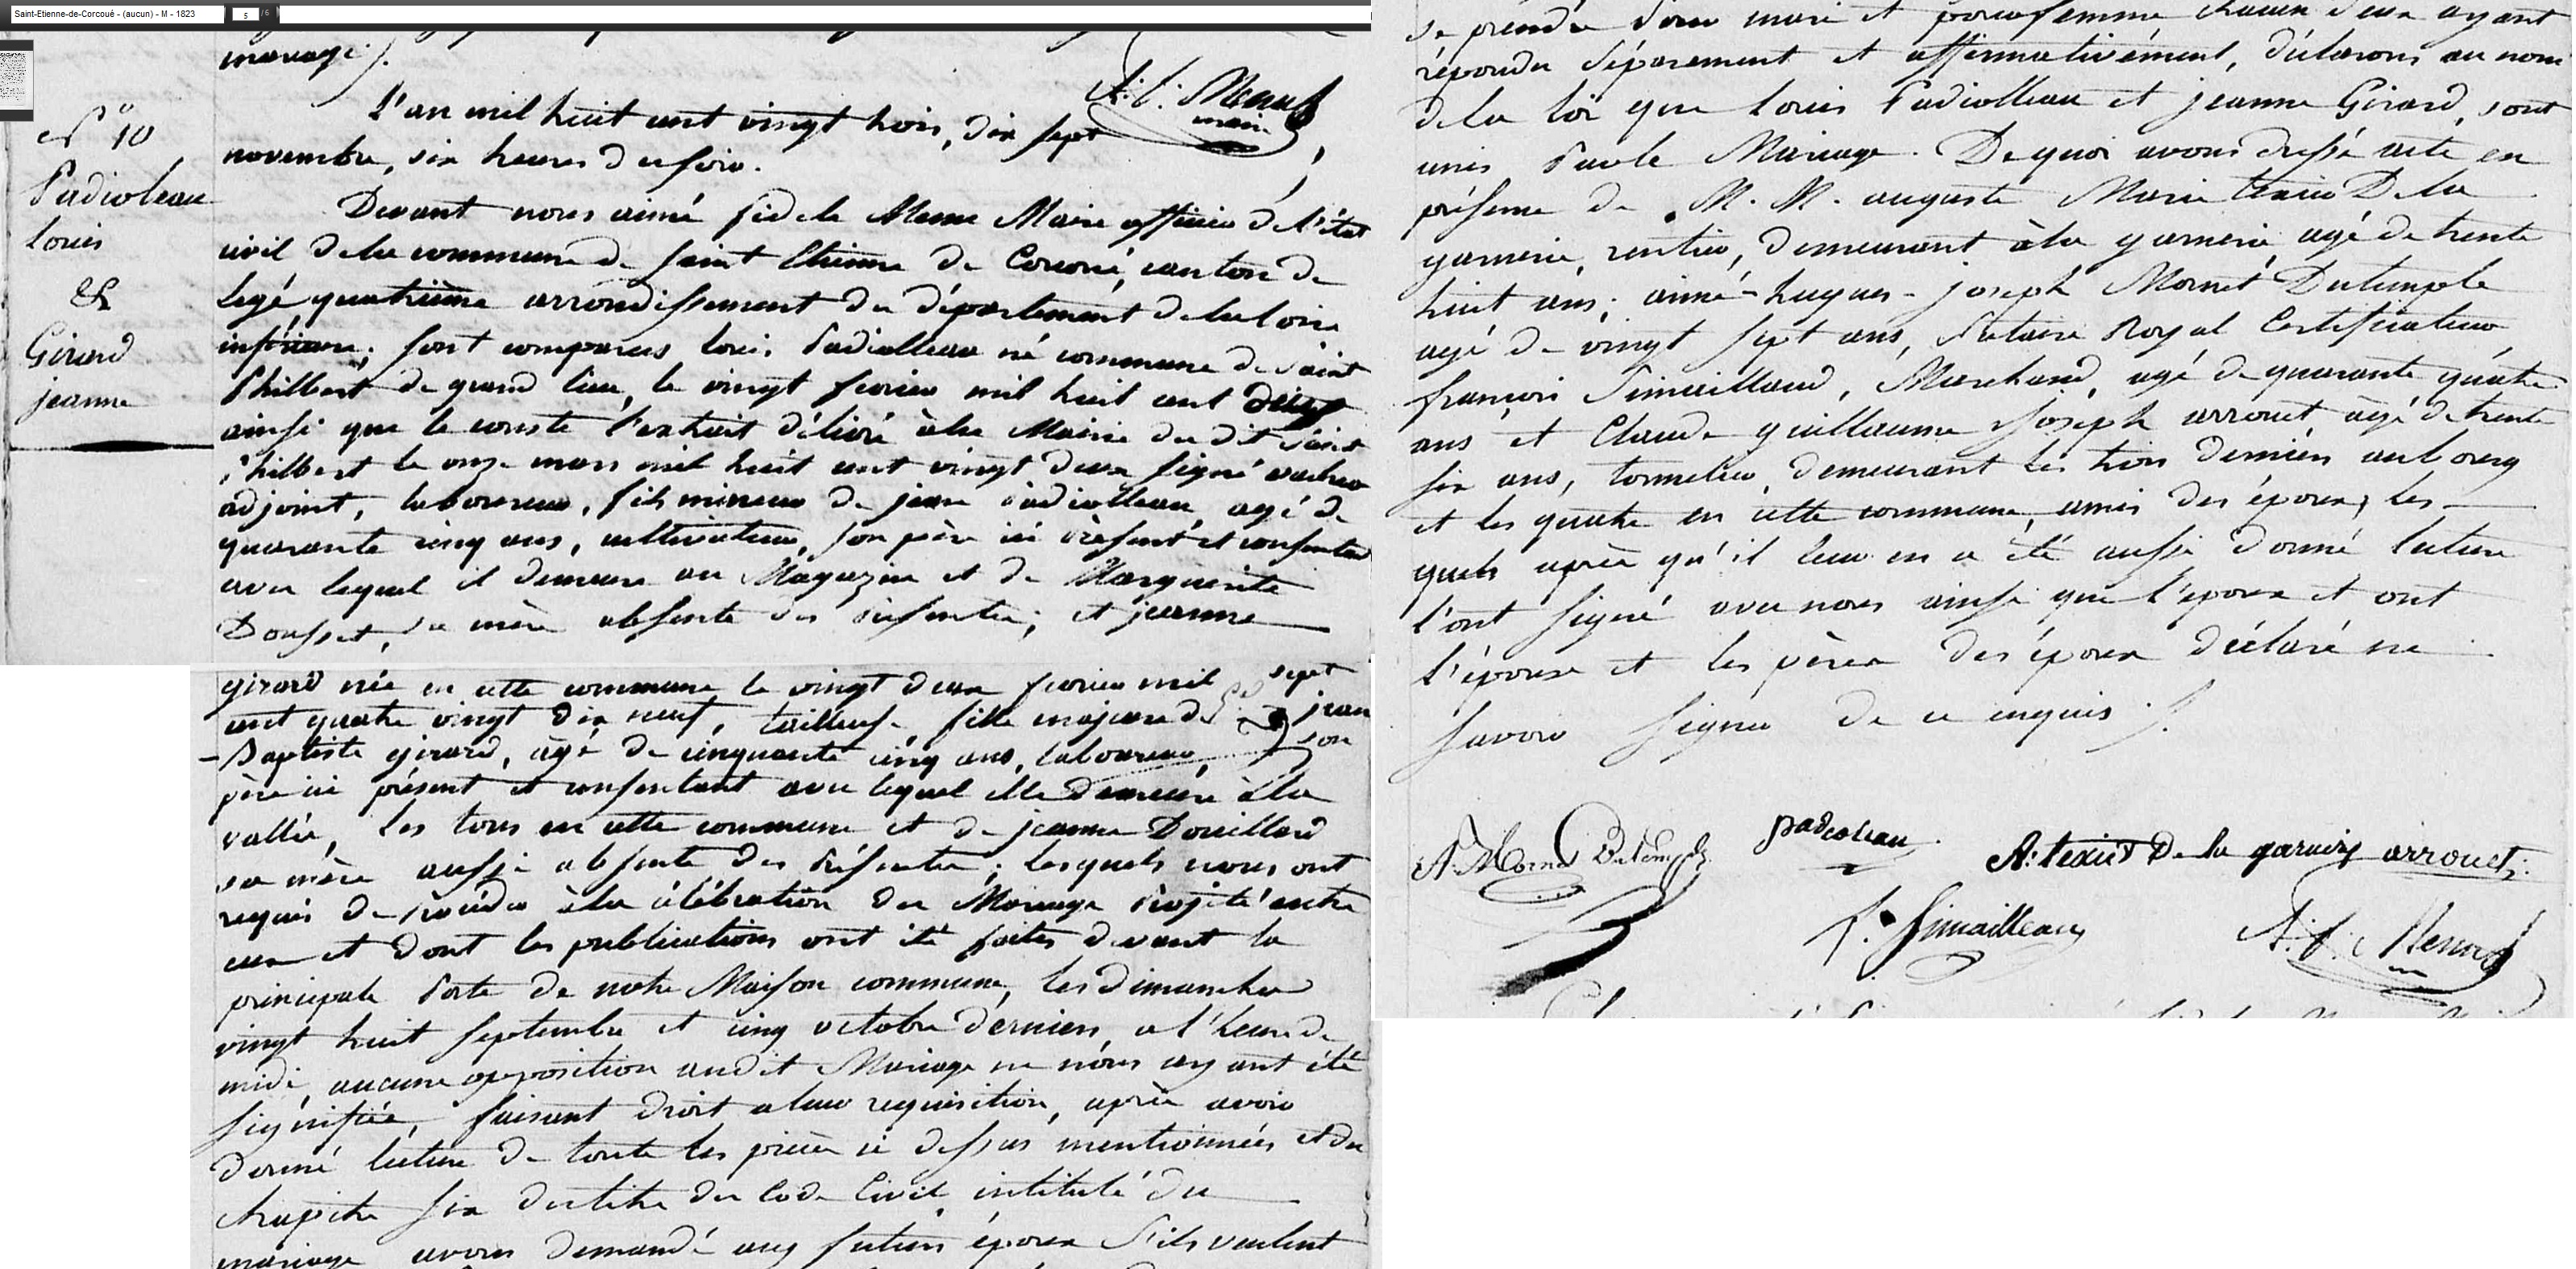 Saint-Etienne-de-Corcoué - (aucun) - M - 1823
5 / 6
mariage ./.
A. f. Menu
maire
N° 10
Padioleau
Louis
&
Girard
jeanne
L'an mil huit cent vingt trois, dix sept
novembre, six heures du soir.
Devant nous aimé fidele Menu Maire officier de l'état
civil de la commune de saint Etienne de Corcoué, canton de
legé, quatrième arrondissement du département de la loire
inférieure, sont comparus louis Padiolleau né commune de saint
Philbert de grand lieu, le vingt fevrier mil huit cent
ainsi que le conste l'extrait délivré à la Mairie du dit saint
Philbert le onze mars mil huit cent vingt deux signé
adjoint, laboureur, fils mineur de jean Padiolleau agé de
quarante cinq ans, cultivateur, son père ici présent et consentant
avec lequel il demeure au Magazin et de Marguerite
Dousset, sa mère absente des présentes; et jeanne
girard née en cette commune le vingt deux fevrier mil sept
cent quatre vingt dix neuf, tailleuse, fille majeure de jean
Baptiste girard, âgé de cinquante cinq ans, laboureur, son
père ici présent et consentant avec lequel elle demeure à la
vallée, les tous en cette commune et de jeanne Douillard
sa mère aussi absente des présentes; lesquels nous ont
requis de procéder à la célébration du Mariage projeté entre
eux et dont les publications ont été faites devant la
principale Porte de notre Maison commune, les dimanches
vingt huit septembre et cinq octobre derniers, a l'heure de
midi, aucune opposition audit Mariage ne nous ayant été
signifiée, faisant droit a leur requisition, après avoir
donné lecture de toute les pièces ci dessus mentionnées et du
chapitre six du titre du Code Civil intitulé du
mariage avons demandé aux futurs époux s'ils veulent
se prendre pour mari et pour femme chacun deux ayant
répondu séparement et affirmativement, déclarons au nom
de la loi que louis Padiolleau et jeanne Girard, sont
unis Par le Mariage. De quoi avons dressé acte en
présence de M. M. auguste Marie texier De la
garnerie, rentier, demeurant à la garnerie agé de trente
huit ans; aimé-hugues-joseph Mornet Dutemple
agé de vingt sept ans, Notaire Royal Certificateur,
françois Simailleaud, Marchand, agé de quarante quatre
ans et Claude guillaume Joseph arrouet, âgé de trente
six ans, tonnelier, demeurant les trois derniers au bourg
et les quatre en cette commune, amis des époux, les
quels après qu'il leur en a été aussi donné lecture
l'ont signé avec nous ainsi que l'époux et ont
l'épouse et les pères des époux déclaré ne
savoir signer de ce enquis ./.
A. Mornet Dutemple padioleau A. texier De la garnerie arrouet
f. Simailleau A. f. Menu